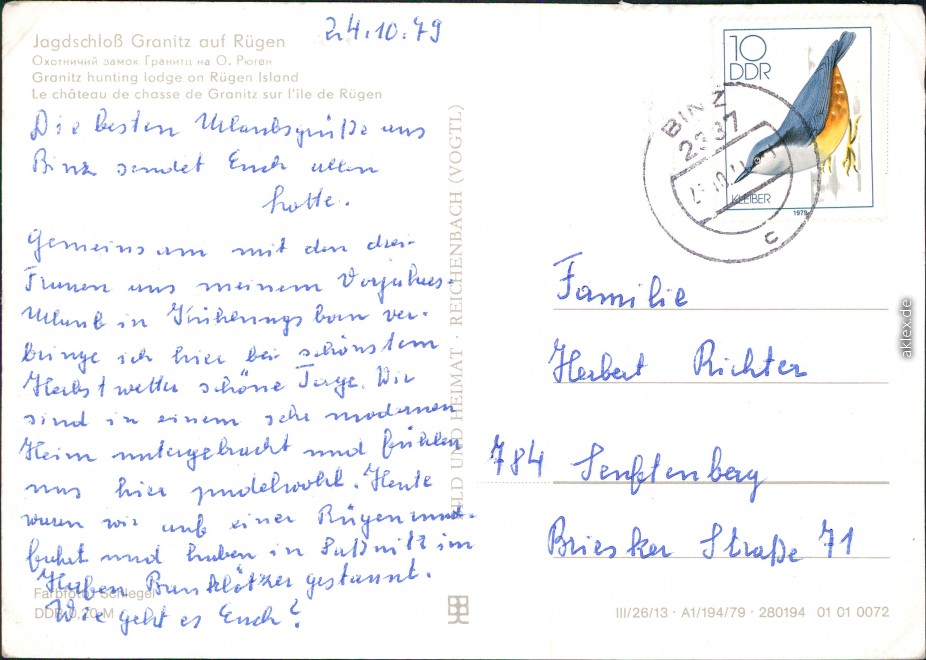 24.10.79
Jagdschloß Granitz auf Rügen
Охотничий замок Гранитц на О. Рюген
Granitz hunting lodge on Rügen Island
Le château de chasse de Granitz sur l'île de Rügen
Die besten Urlaubsgrüße aus
Binz sendet Euch allen
Lotte.
Gemeinsam mit den drei
Frauen aus meinem Vorjahres-
Urlaub in Kühlungsborn ver-
bringe ich hier bei schönstem
Herbstwetter schöne Tage. Wir
sind in einem sehr modernen
Heim untergebracht und fühlen
uns hier pudelwohl. Heute
waren wir auf einer Rügenrund-
fahrt und haben in Saßnitz im
Hafen Bauklötzer gestaunt.
Wie geht es Euch?
Farbfoto: Schlegel
DDR 0,20 M
BILD UND HEIMAT · REICHENBACH (VOGTL)
10
DDR
KLEIBER
1979
BINZ
2337
c
Familie
Herbert Richter
784 Senftenberg
Briesker Straße 71
III/26/13 · A1/194/79 · 280194 01 01 0072
aklex.de